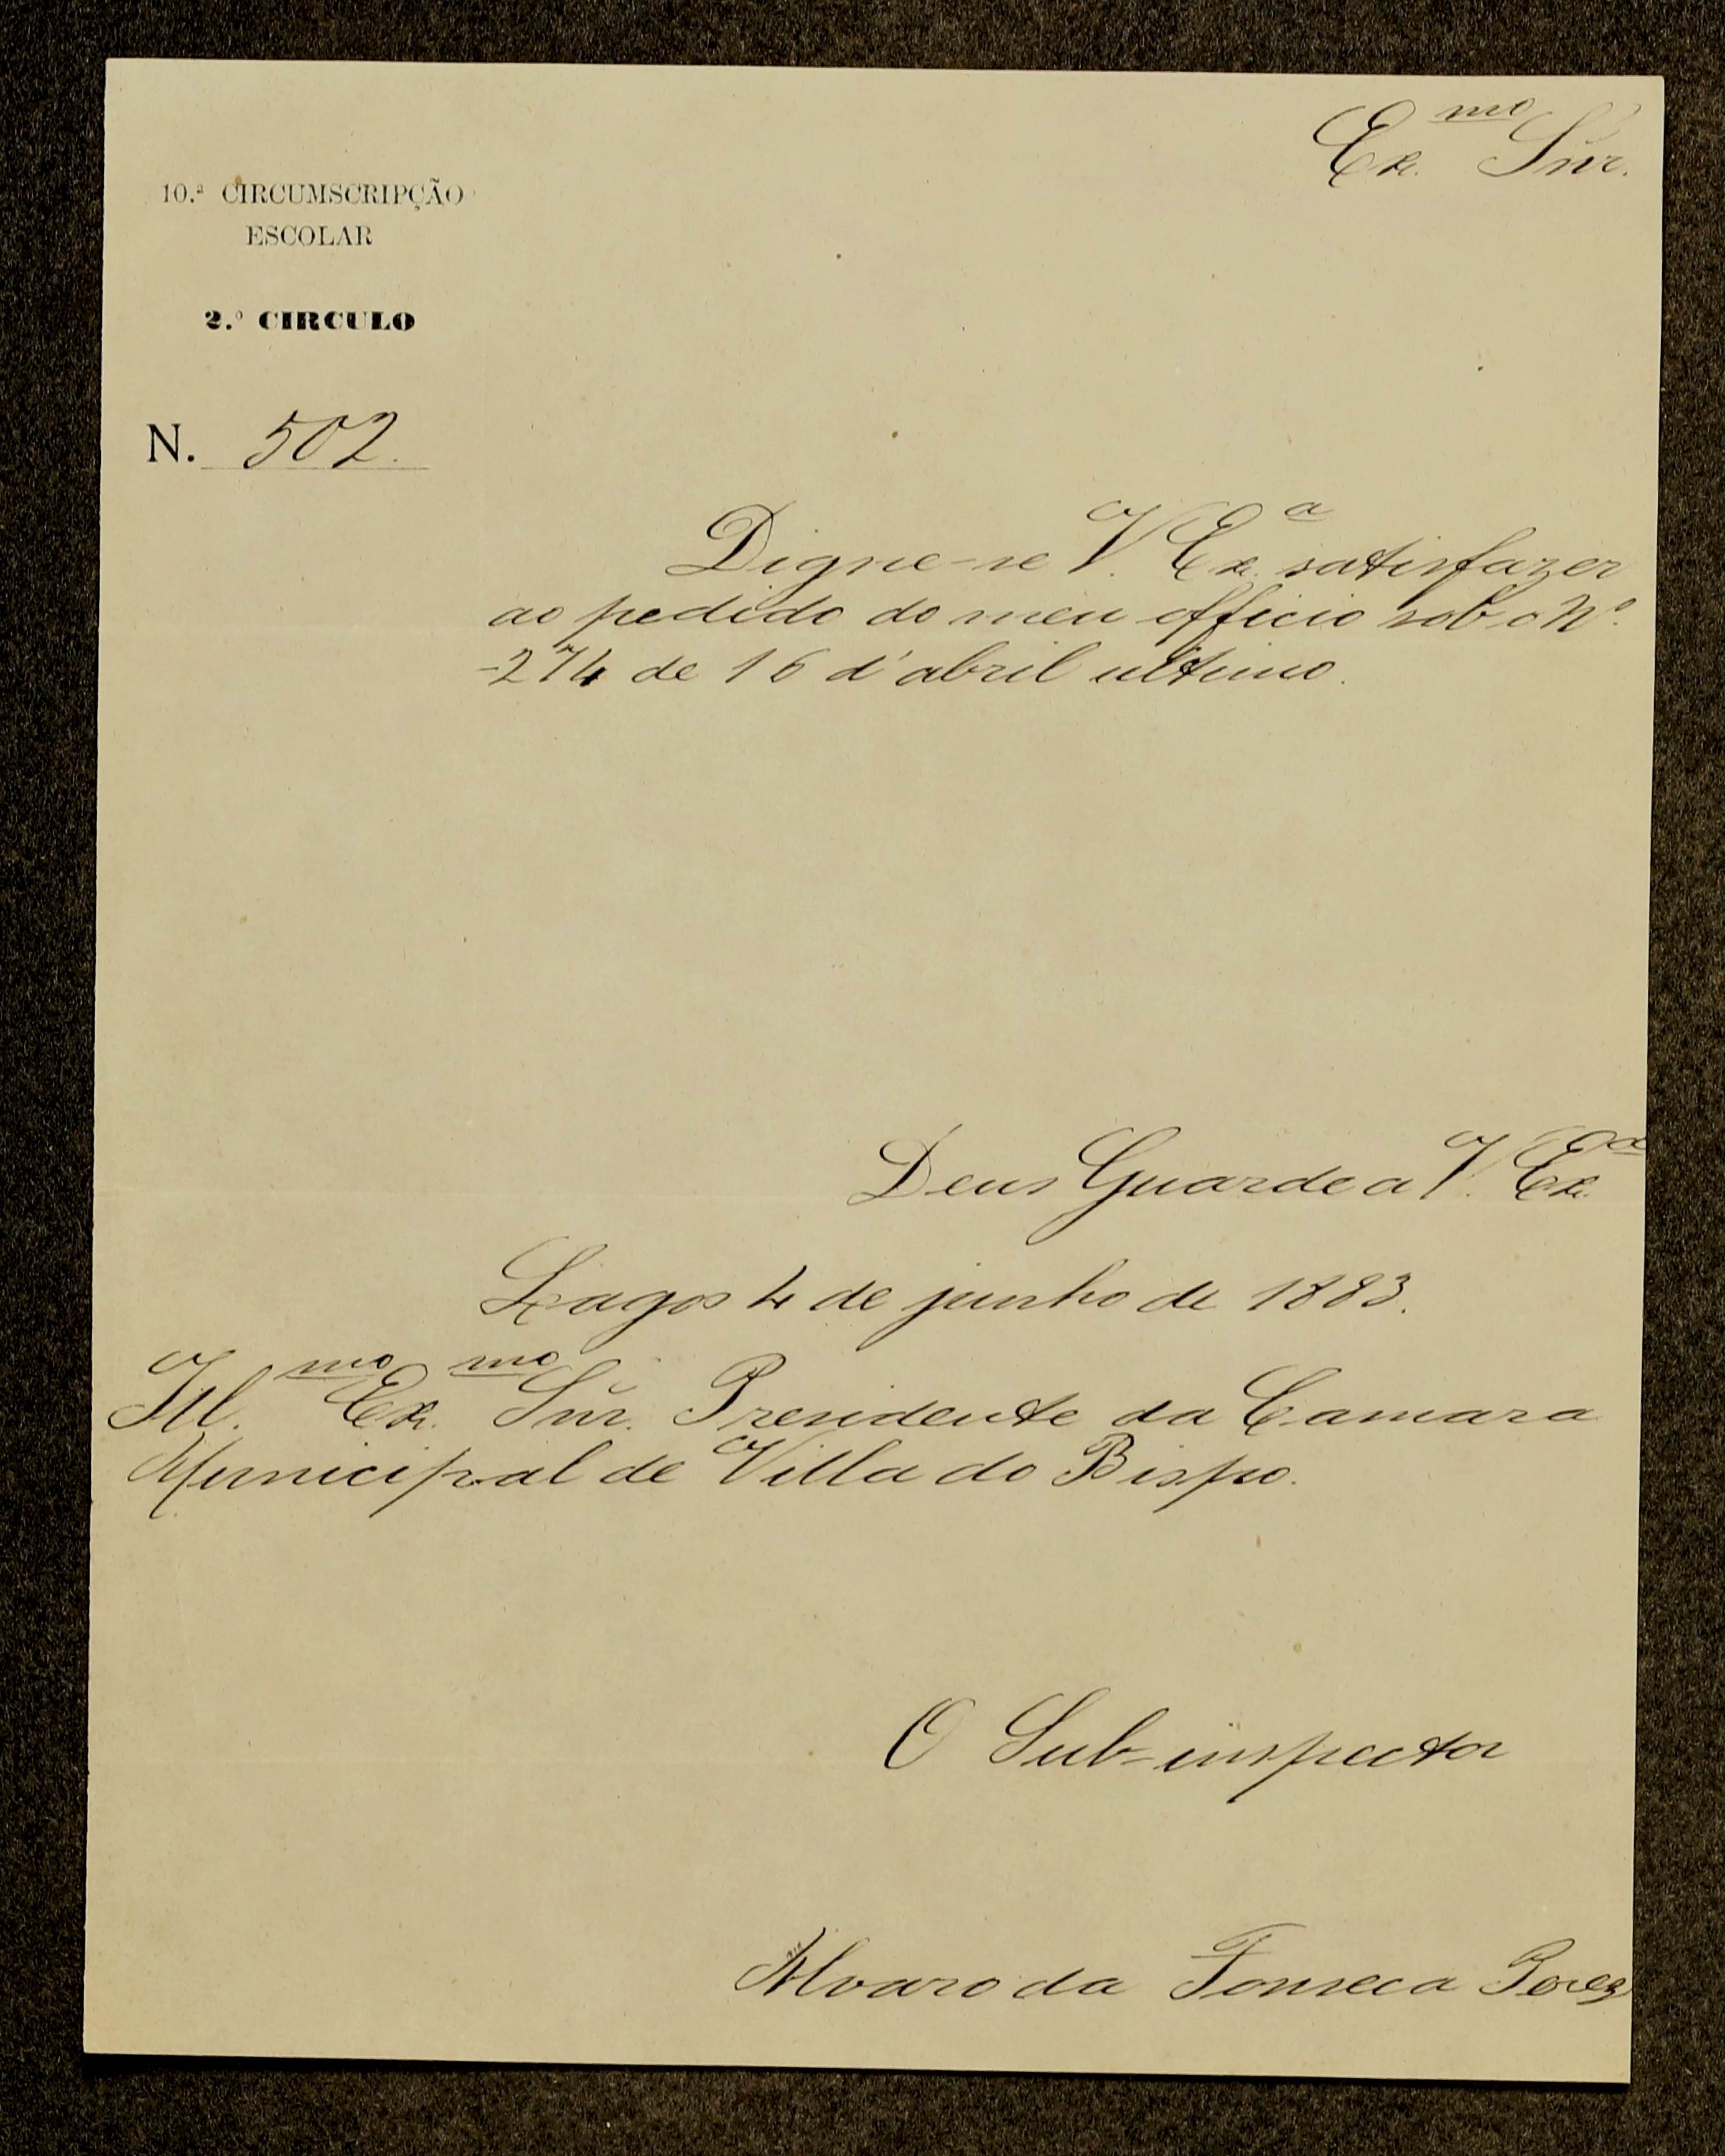 Ex.mo Snr.
10.ª CIRCUMSCRIPÇÃO
ESCOLAR
2.º CIRCULO
N. 502.
Digne-se V. Ex.a satisfazer
ao pedido do meu officio sob o Nº.
274 de 16 d'abril ultimo.
Deus Guarde a V. Ex.a
Lagos 4 de junho de 1883.
Ill.mo Ex.mo Snr. Presidente da Camara
Municipal de Villa do Bispo.
O Sub-inspector
Alvaro da Fonseca